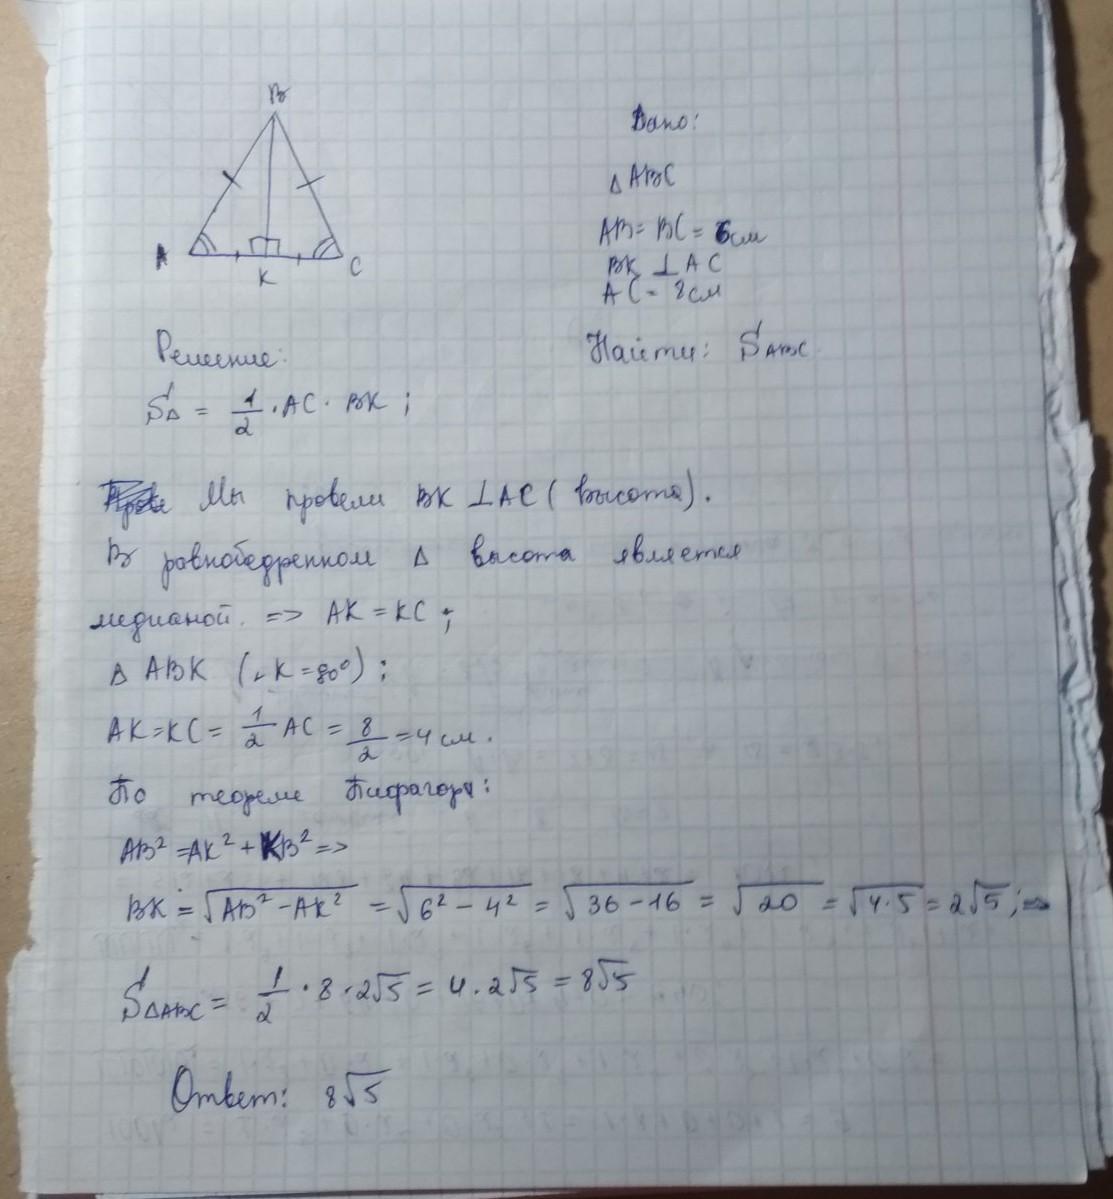 B
A
K
C
Дано:
Δ ABC
AB = BC = 6см
BK ⊥ AC
AC = 8см
Найти: S ABC
Решение:
SΔ = 1/2 · AC · BK ;
Мы провели BK ⊥ AC ( высота ).
В равнобедренном Δ высота является
медианой. => AK = KC ;
Δ ABK (∠K = 90°) ;
AK = KC = 1/2 AC = 8/2 = 4 см.
По теореме Пифагора:
AB² = AK² + KB² =>
BK = √(AB² - AK²) = √(6² - 4²) = √(36 - 16) = √20 = √(4·5) = 2√5 ; =>
SΔABC = 1/2 · 8 · 2√5 = 4 · 2√5 = 8√5
Ответ: 8√5